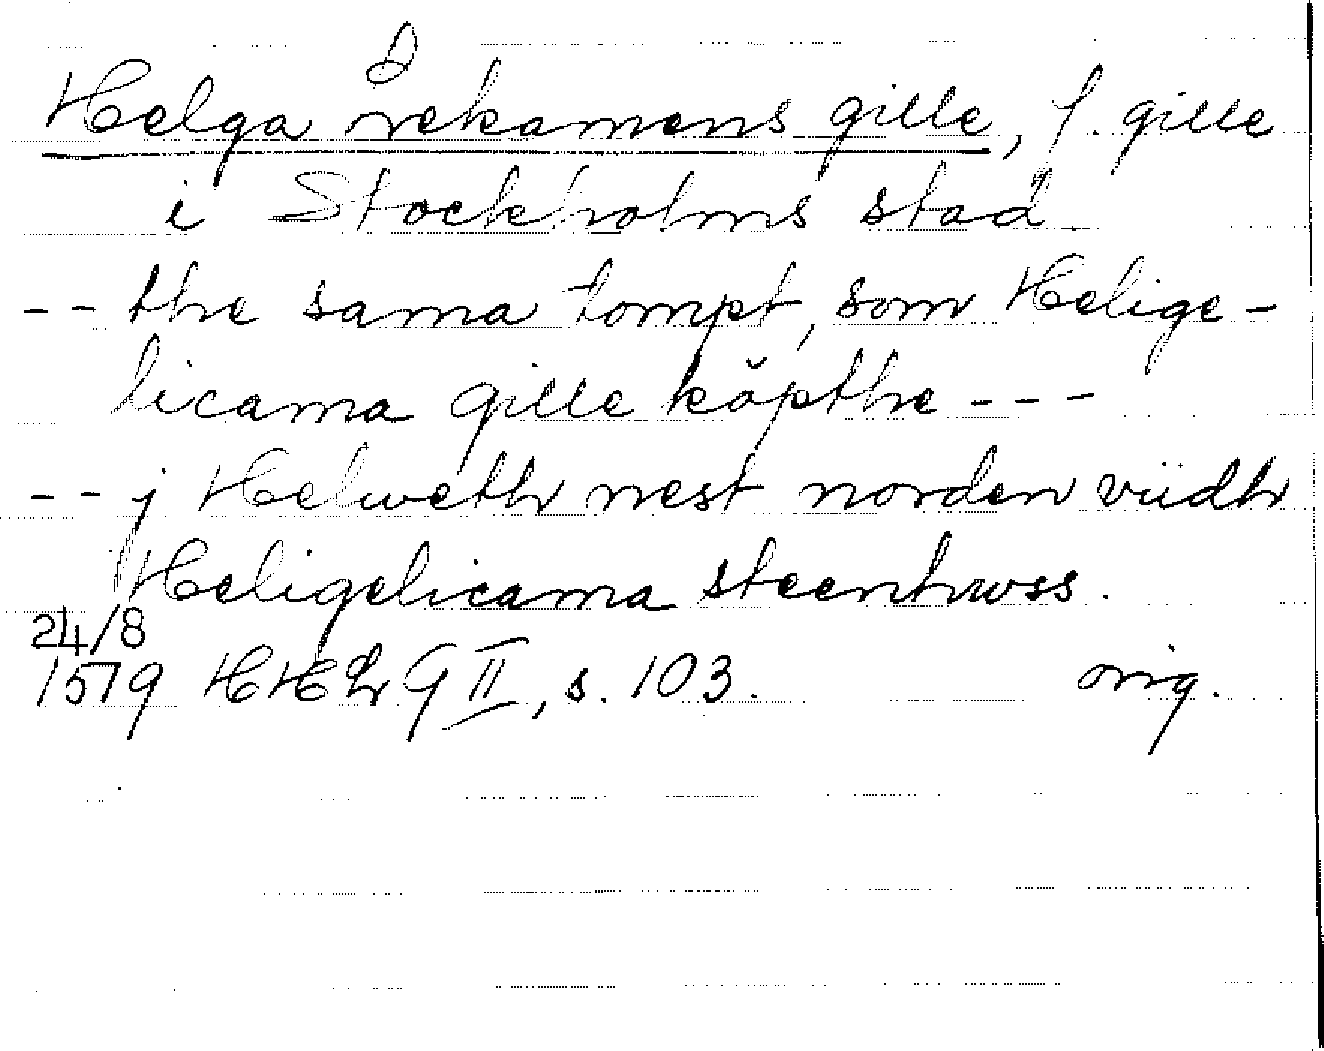 Helga lekamens gille, f. gille
i Stockholms stad
-- the sama tompt, som Helige-
licama gille köpthe ---
-- j Helweth nest norden viidh
Heligelicama steenhwss.
24/8
1519 HHLr G II, s. 103. orig.